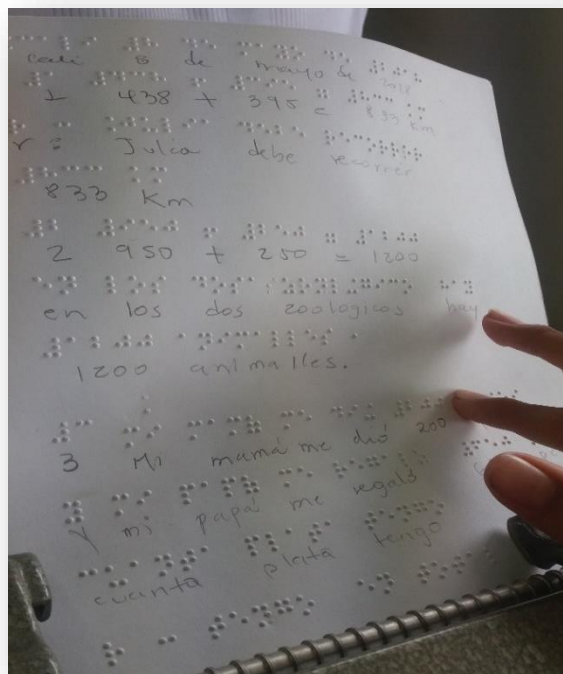 cali 5 de mayo de 2018
1 438 + 395 = 833 km
r: Julia debe recorrer
833 Km
2 950 + 250 = 1200
en los dos zoologicos hay
1200 animalles.
3 Mi mamá me dió 200
y mi papá me regaló
cuanta plata tengo